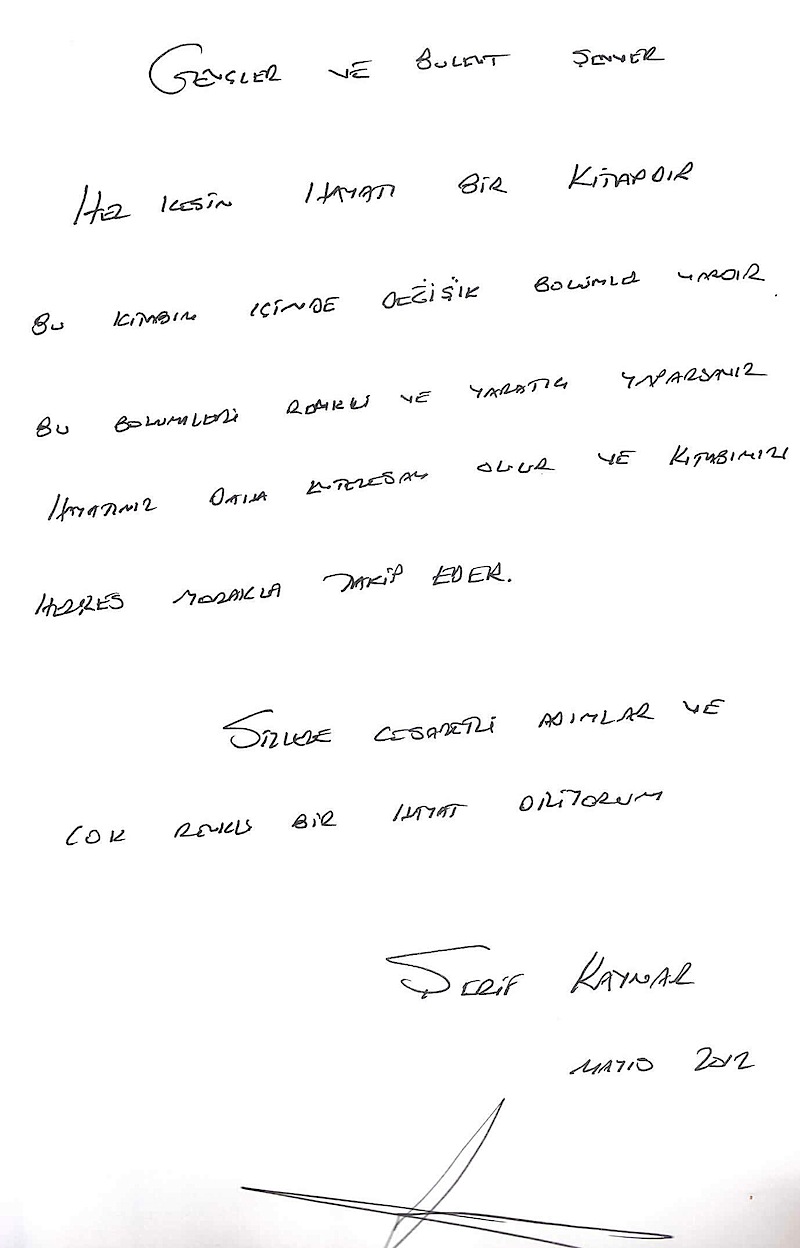 GENÇLER VE BULENT ŞENVER
HER KESİN HAYATI BİR KİTAPDIR
BU KİTABIN IÇİNDE DEĞİŞİK BOLÜMLER VARDIR.
BU BOLUMLERİ RENKLİ VE YARATICI YAPARSANIZ
HAYATINIZ DAHA ENTERESAN OLUR VE KITABINIZI
HERKES MERAKLA TAKİP EDER.
SİZLERE CESARETLİ ADIMLAR VE
COK RENKLİ BİR HAYAT DİLİYORUM
ŞERİF KAYNAR
MAYIS 2012